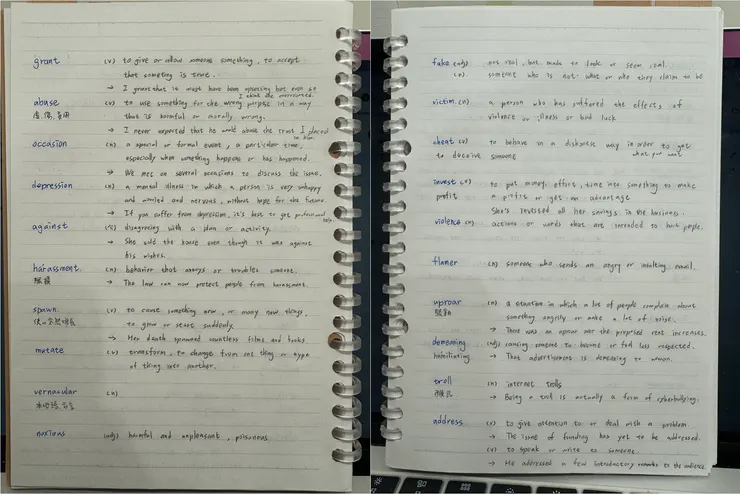 grant (v) to give or allow someone something, to accept
that someting is true.
→ I grant that it must have been upsetting but even so
I think she overreacted.
abuse (v) to use something for the wrong purpose in a way
that is harmful or morally wrong.
→ I never expected that he would abuse the trust I placed
in him.
occasion (n) a special or formal event, a particular time,
especially when something happens or has happened.
→ We met on several occasions to discuss the issue.
depression (n) a mental illness in which a person is very unhappy
and worried and nervous, without hope for the future.
→ If you suffer from depression, it's best to get professional
help.
against disagreeing with a plan or activity.
→ She sold the house even though it was against
his wishes.
harassment. (n) behavior that annoys or troubles someone.
→ The law can now protect people from harassment.
spawn. (v) to cause something new, or many new things,
to grow or start suddenly.
→ Her death spawned countless films and books.
mutate (v) transform, to change from one thing or type
of thing into another.
vernacular (n)
noxious (adj) harmful and unpleasant, poisonous
fake (adj) not real, but made to look or seem real.
(n) someone who is not what or who they claim to be
victim. (n) a person who has suffered the effects of
violence or illness or bad luck
cheat (v) to behave in a dishonest way in order to get
what you want
to deceive someone
invest (v) to put money, effort, time into something to make
profit a profit or get an advantage
She's invested all her savings in the business.
violence (n) actions or words that are intended to hurt people.
flamer (n) someone who sends an angry or insulting email.
uproar (n) a situation in which a lot of people complain about
something angrily or make a lot of noise.
→ There was an uproar over the proposed rent increases.
demeaning (adj) causing someone to become or feel less respected.
humiliating → That advertisement is demeaning to women.
troll (n) internet trolls
→ Being a troll is actually a form of cyberbullying.
address (v) to give attention to or deal with a problem.
→ The issue of funding has yet to be addressed.
(v) to speak or write to someone.
→ He addressed a few introductory remarks to the audience.